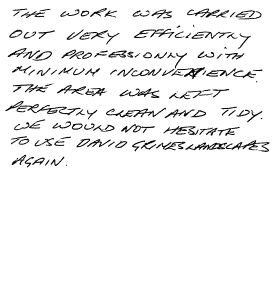 THE WORK WAS CARRIED
OUT VERY EFFICIENTLY
AND PROFESSIONLY WITH
MINIMUM INCONVENIENCE.
THE AREA WAS LEFT
PERFECTLY CLEAN AND TIDY.
WE WOULD NOT HESITATE
TO USE DAVID GRIMES LANDSCAPES
AGAIN.